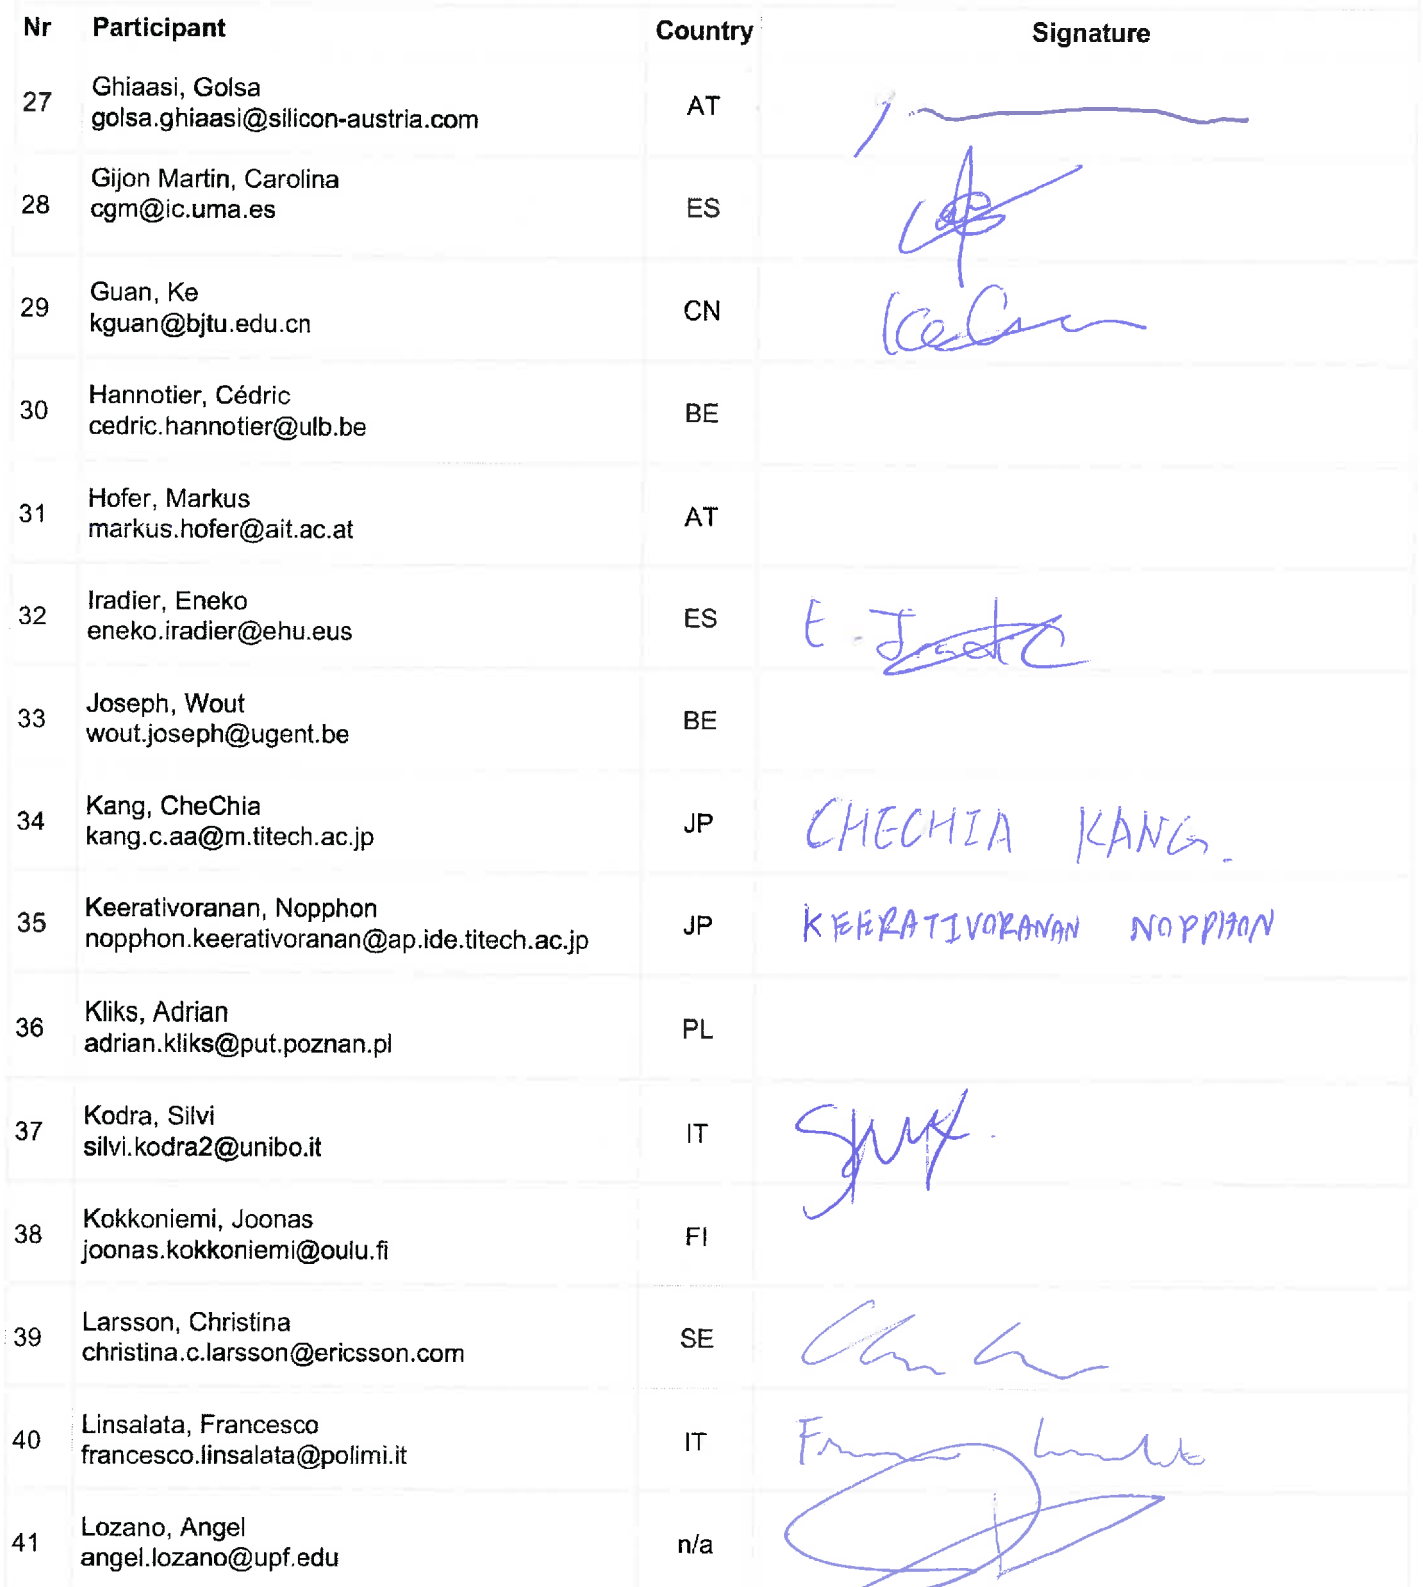 Nr Participant Country Signature
27 Ghiaasi, Golsa AT
golsa.ghiaasi@silicon-austria.com
28 Gijon Martin, Carolina ES
cgm@ic.uma.es
29 Guan, Ke CN
kguan@bjtu.edu.cn
30 Hannotier, Cédric BE
cedric.hannotier@ulb.be
31 Hofer, Markus AT
markus.hofer@ait.ac.at
32 Iradier, Eneko ES
eneko.iradier@ehu.eus
33 Joseph, Wout BE
wout.joseph@ugent.be
34 Kang, CheChia JP CHECHIA KANG.
kang.c.aa@m.titech.ac.jp
35 Keerativoranan, Nopphon JP KEERATIVORANAN NOPPHON
nopphon.keerativoranan@ap.ide.titech.ac.jp
36 Kliks, Adrian PL
adrian.kliks@put.poznan.pl
37 Kodra, Silvi IT
silvi.kodra2@unibo.it
38 Kokkoniemi, Joonas FI
joonas.kokkoniemi@oulu.fi
39 Larsson, Christina SE
christina.c.larsson@ericsson.com
40 Linsalata, Francesco IT
francesco.linsalata@polimi.it
41 Lozano, Angel n/a
angel.lozano@upf.edu